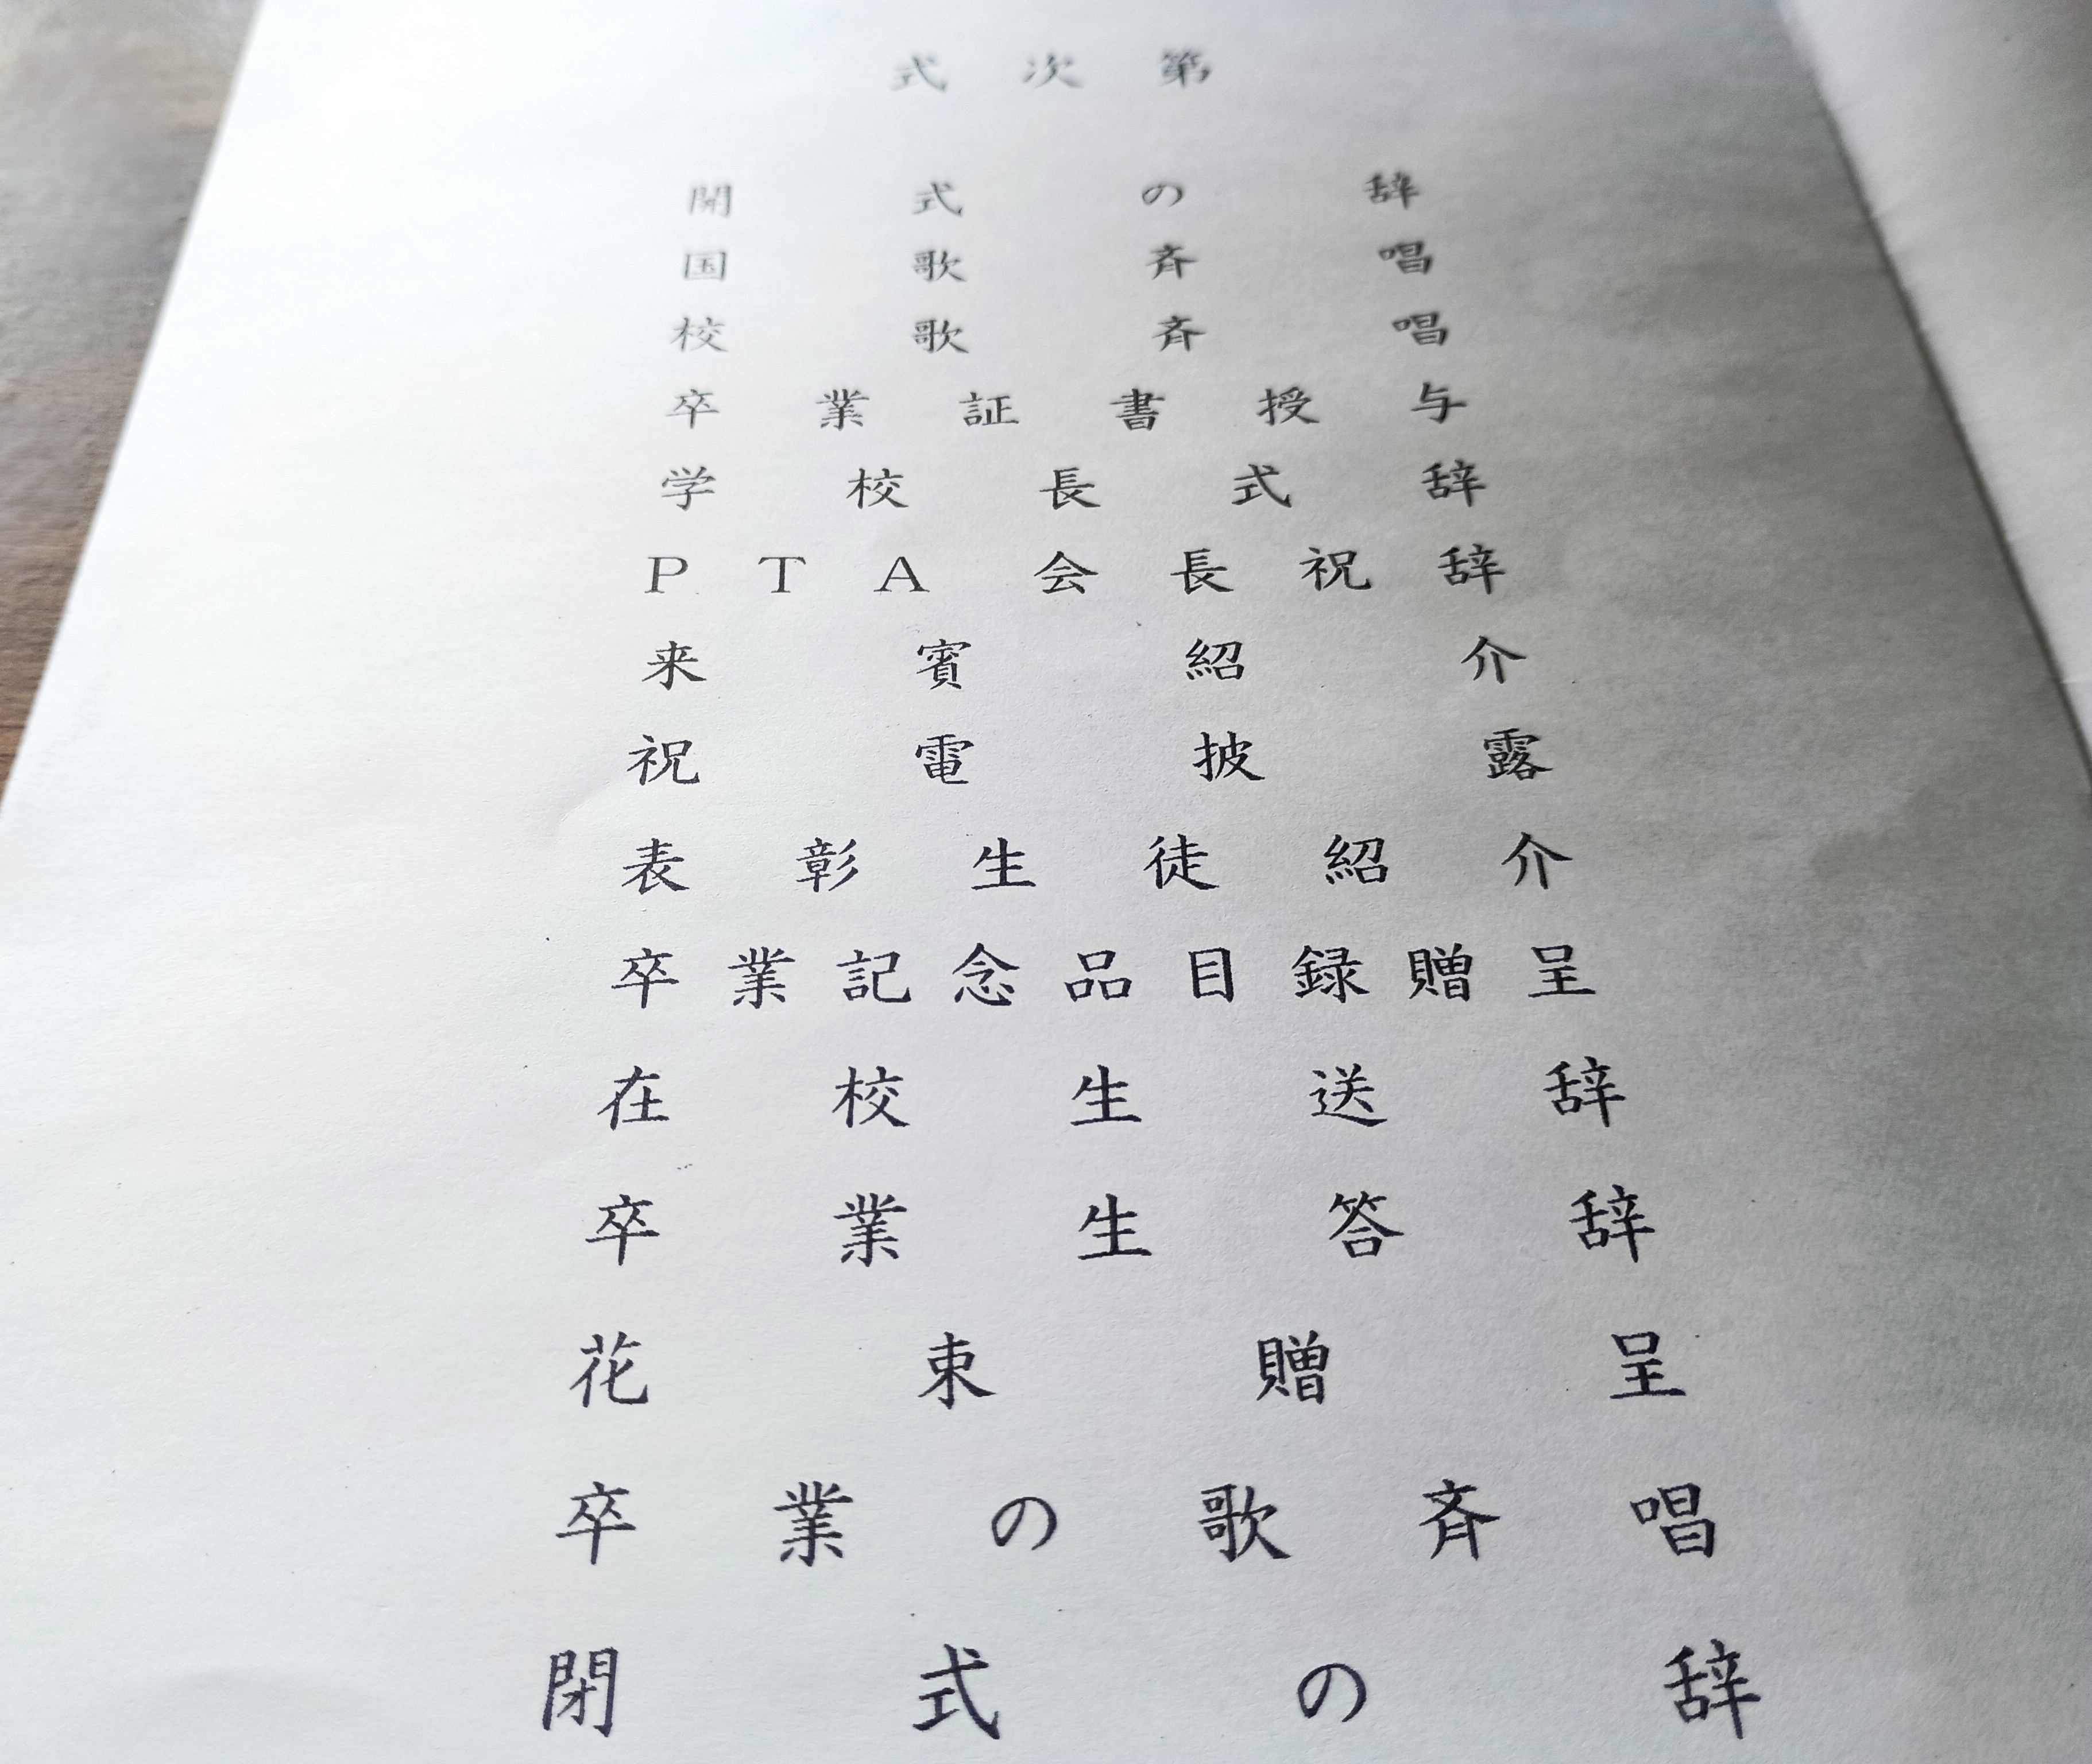 式次第
開式の辞
国歌斉唱
校歌斉唱
卒業証書授与
学校長式辞
PTA会長祝辞
来賓紹介
祝電披露
表彰生徒紹介
卒業記念品目録贈呈
在校生送辞
卒業生答辞
花束贈呈
卒業の歌斉唱
閉式の辞